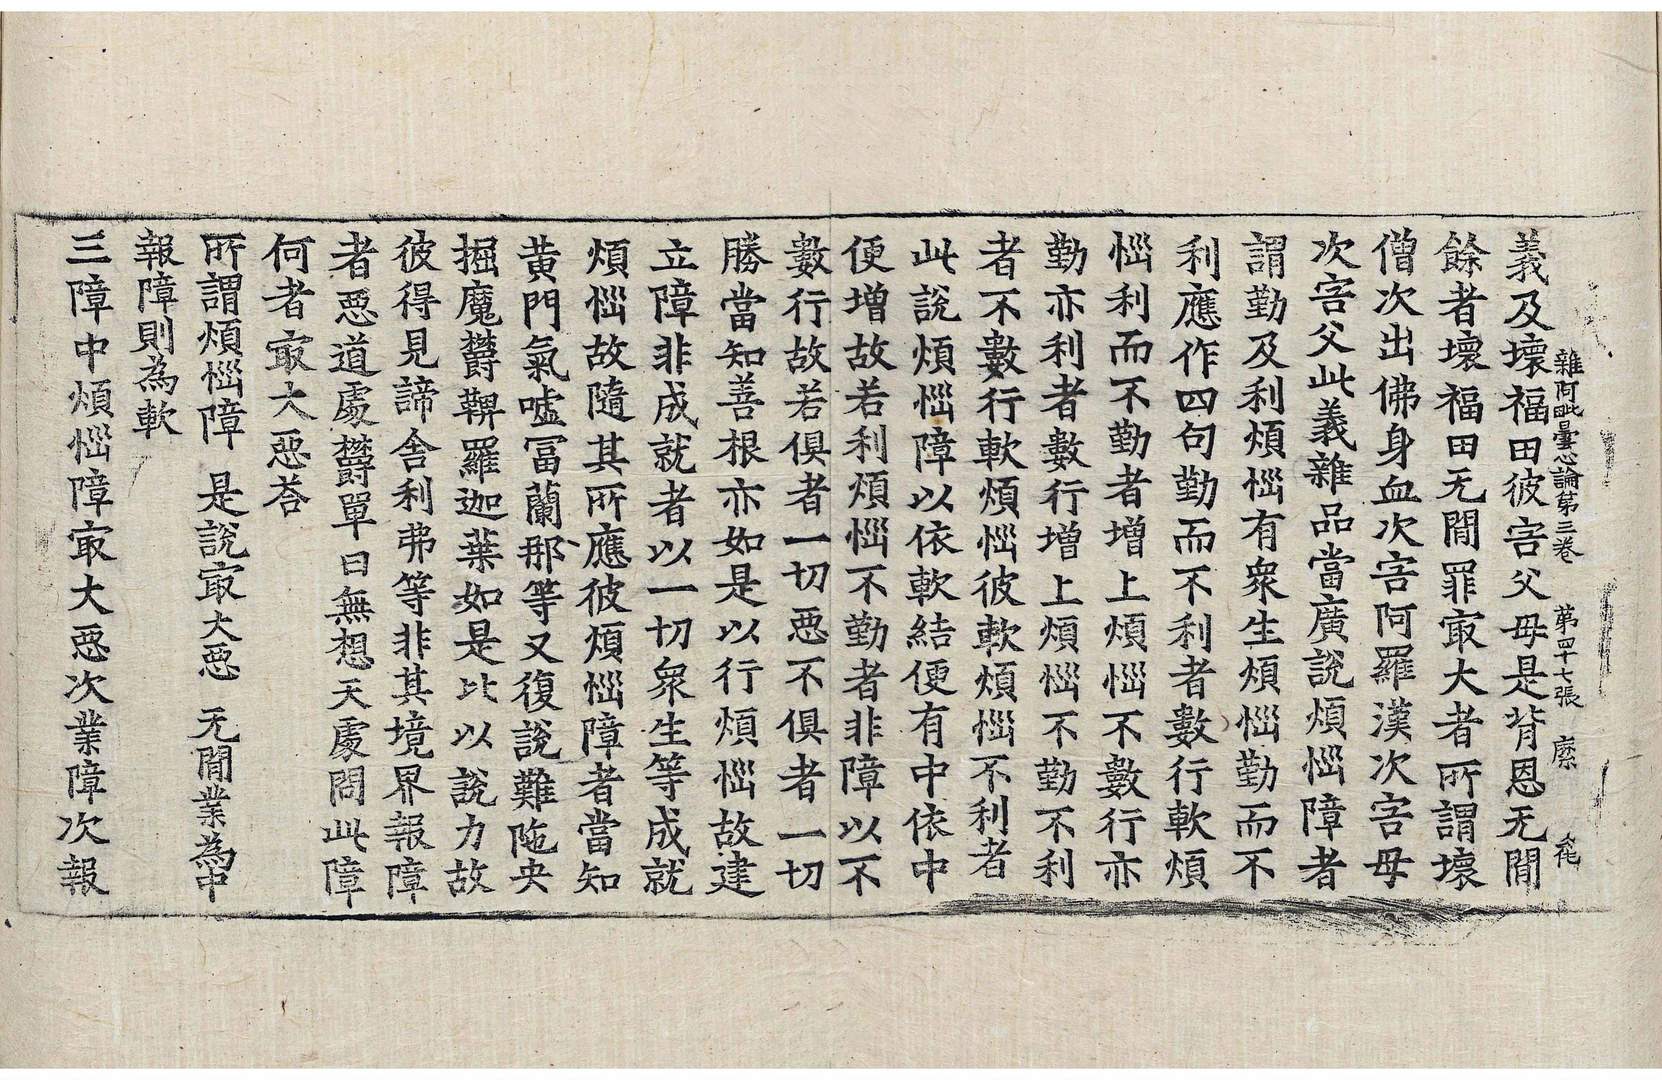 雜阿毗曇心論第三卷 第四十七張 縻
義及壞福田彼害父母是背恩无閒
餘者壞福田无閒罪㝡大者所謂壞
僧次出佛身血次害阿羅漢次害母
次害父此義雜品當廣說煩惱障者
謂勤及利煩惱有衆生煩惱勤而不
利應作四句勤而不利者數行軟煩
惱利而不勤者增上煩惱不數行亦
勤亦利者數行增上煩惱不勤不利
者不數行軟煩惱彼軟煩惱不利者
此說煩惱障以依軟結便有中依中
便增故若利煩惱不勤者非障以不
數行故若俱者一切惡不俱者一切
勝當知善根亦如是以行煩惱故建
立障非成就者以一切衆生等成就
煩惱故隨其所應彼煩惱障者當知
黃門氣噓冨蘭那等又復說難陁央
掘魔欝鞞羅迦葉如是比以說力故
彼得見諦舍利弗等非其境界報障
者惡道處欝單曰無想天處問此障
何者㝡大惡荅
所謂煩惱障 是說㝡大惡 无閒業為中
報障則為軟
三障中煩惱障㝡大惡次業障次報